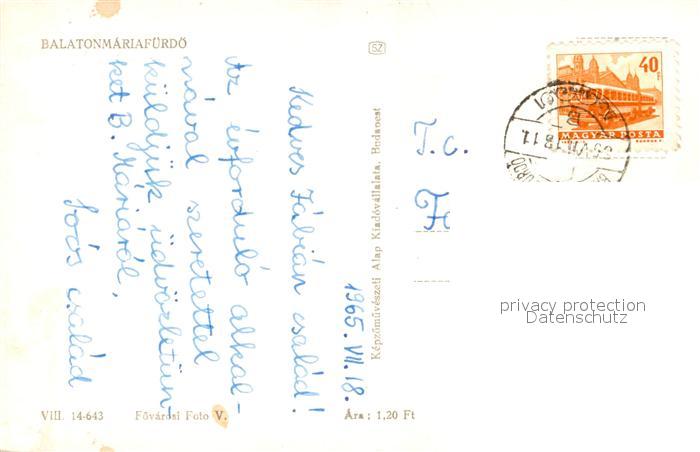 BALATONMÁRIAFÜRDŐ
SZ
Kedves Fábián család!
Az évforduló alkal-
mával szeretettel
küldjük üdvözletün-
ket B. Máriáról,
Soós család
1965. VII. 18.
Képzőművészeti Alap Kiadóvállalata, Budapest
T. c.
40 f
MAGYAR POSTA
privacy protection
Datenschutz
VIII. 14-643
Fővárosi Foto V.
Ára : 1,20 Ft